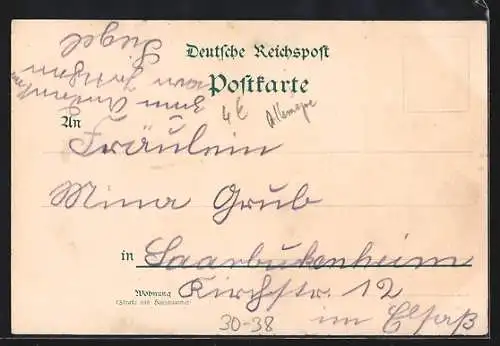 Deutsche Reichspost
Postkarte
Zum Andenken
von
Siegel
4 €
Allemagne
An
Fräulein
Mina Grub
in Saarbuckenheim
Wohnung
(Straße und Hausnummer)
Kirchstr. 12
im Elsaß
30-38